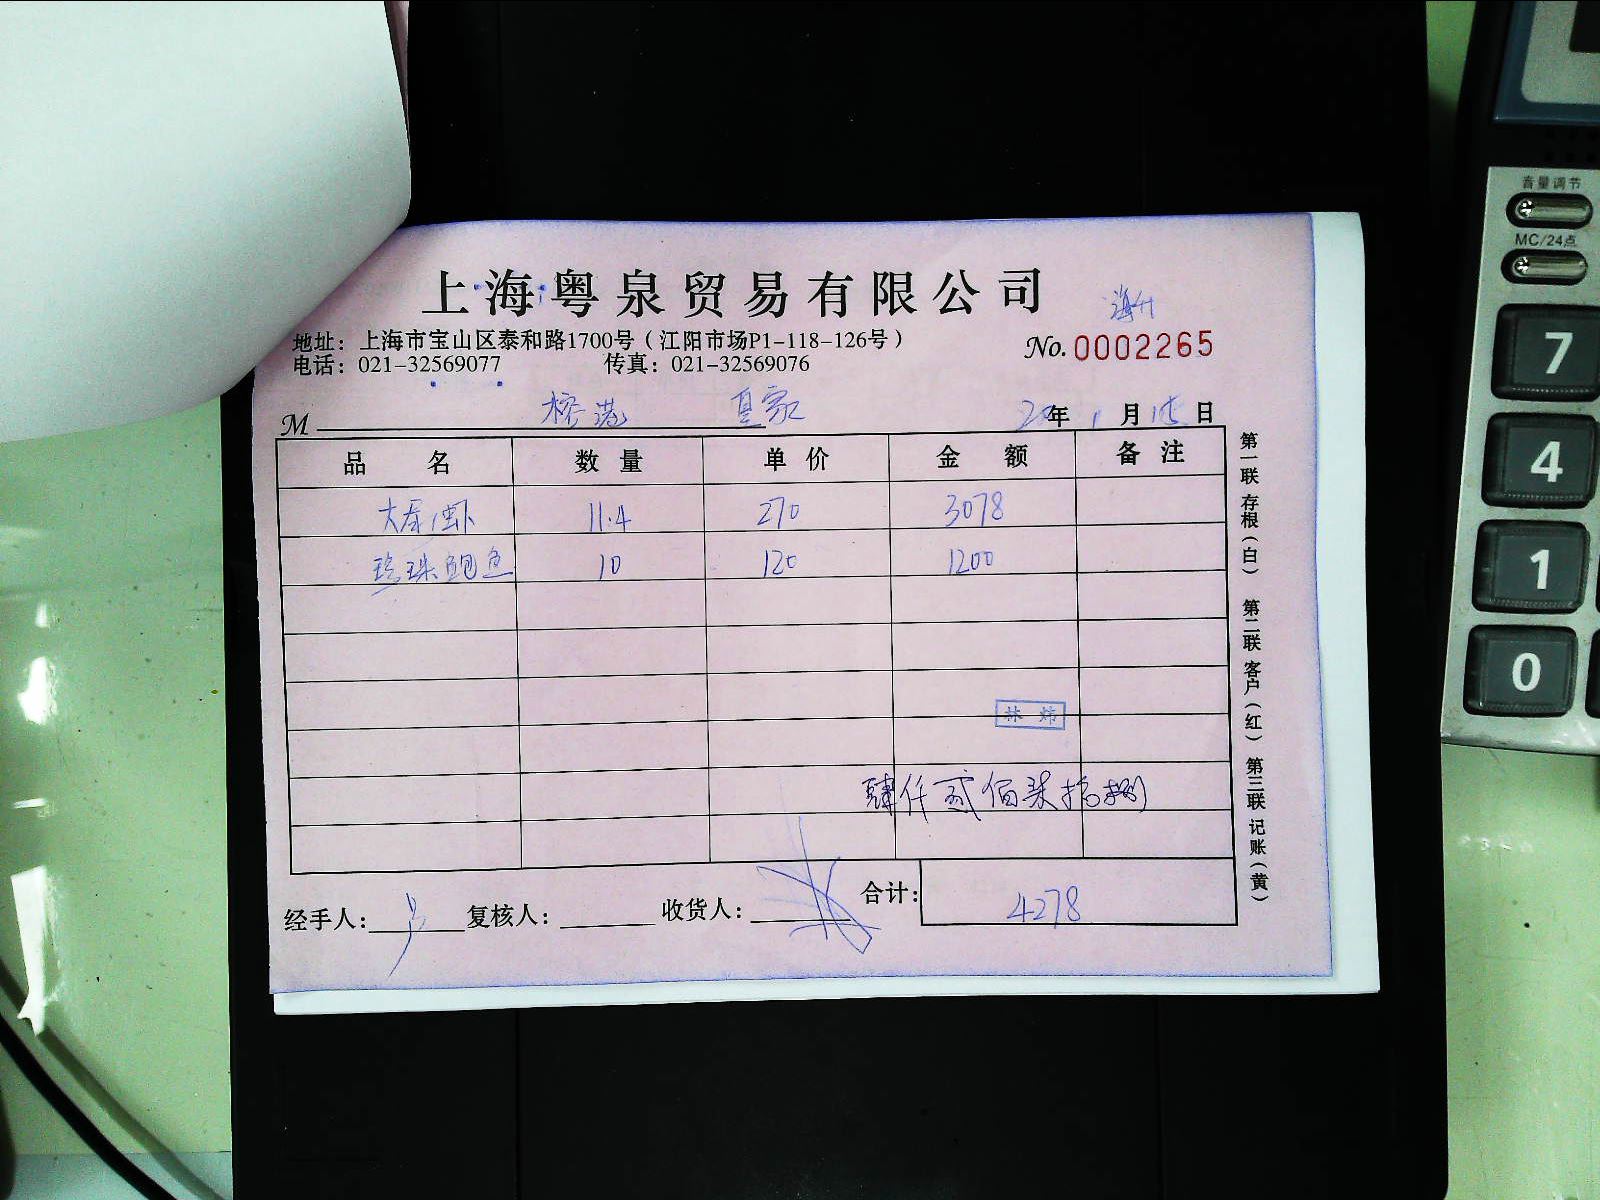 上海粤泉贸易有限公司
地址：上海市宝山区泰和路1700号（江阳市场P1-118-126号）
电话：021-32569077 传真：021-32569076
No. 0002265
M 榕港 皇家 20年1月15日
品名 数量 单价 金额 备注
11.4 270 3078
珍珠鲍鱼 10 120 1200
林炜
肆仟贰佰柒拾捌
经手人： 复核人： 收货人： 合计： 4278
第一联 存根（白） 第二联 客户（红） 第三联 记账（黄）
音量调节
MC/24点
7
4
1
0